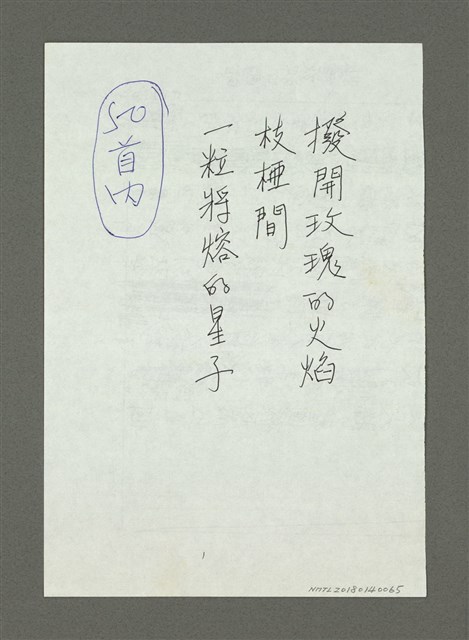 撥開玫瑰的火焰
枝椏間
一粒將熔的星子
50首內
NMTL20180140065